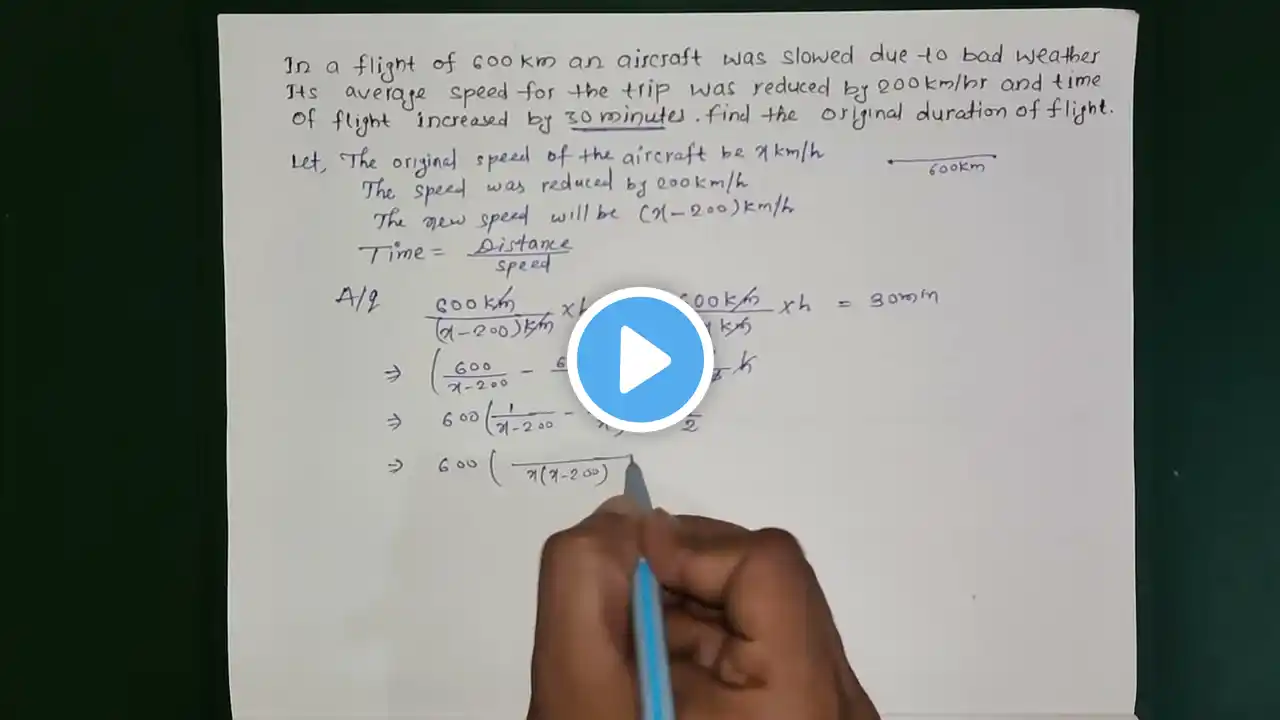 In a flight of 600 km an aircraft was slowed due to bad weather
Its average speed for the trip was reduced by 200 km/hr and time
of flight increased by 30 minutes. find the original duration of flight.
Let, The original speed of the aircraft be x km/h
600 km
The speed was reduced by 200 km/h
The new speed will be (x-200) km/h
Time = Distance/speed
A/q 600 km/(x-200) km × h 600 km/x km × h = 30 min
⇒ (600/x-200 - h
⇒ 600 (1/x-200 - x) 2
⇒ 600 ( x(x-200)